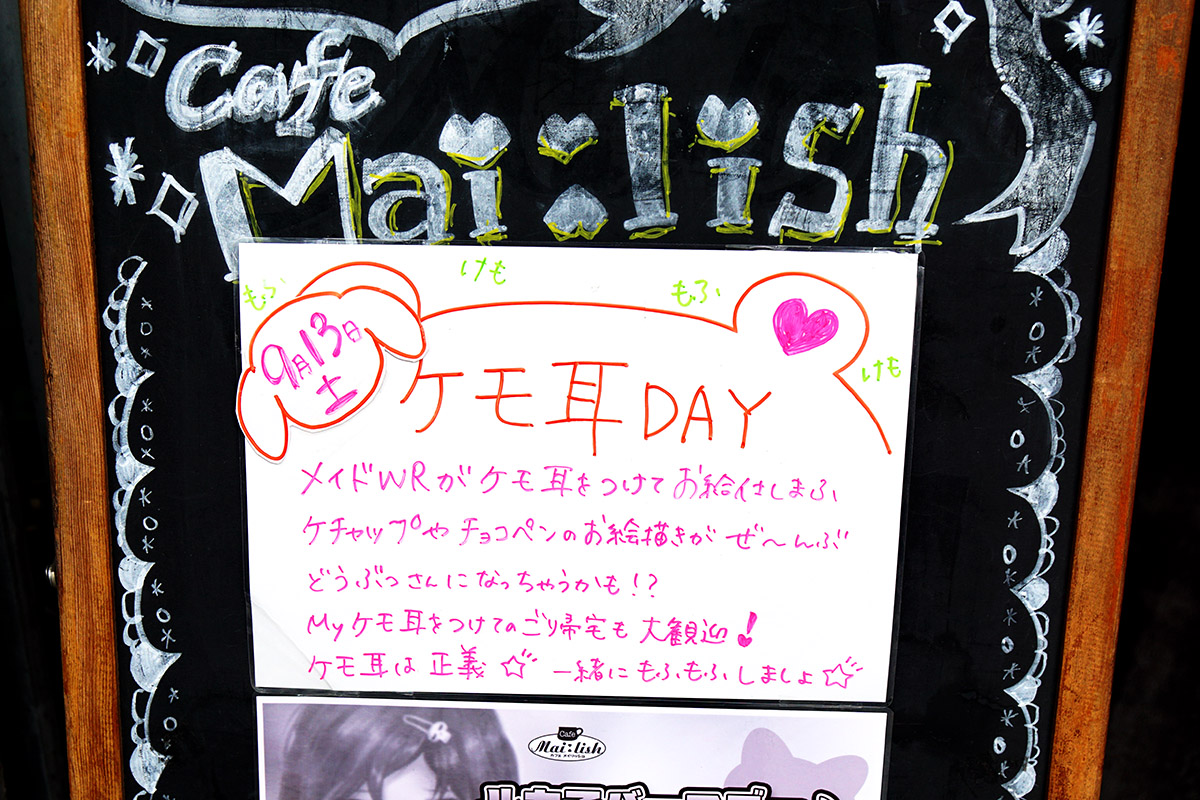 Cafe
Mai:lish
もふ
けも
もふ
けも
9月13日
土
ケモ耳DAY
メイドWRがケモ耳をつけてお給仕しまふ
ケチャップやチョコペンのお絵描きがぜ〜んぶ
どうぶつさんになっちゃうかも!?
Myケモ耳をつけてのご帰宅も大観迎!
ケモ耳は正義☆ 一緒にもふもふしましょ☆
Cafe
Mai:lish